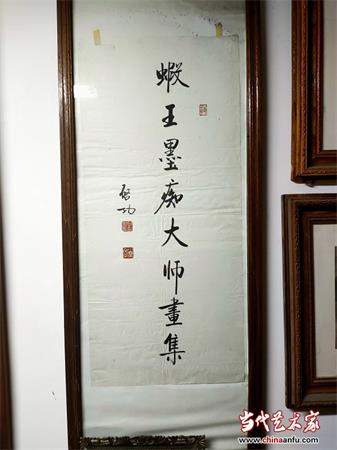 蝦王墨痴大师畫集
启功
当代艺术家
www.chinaanfu.com